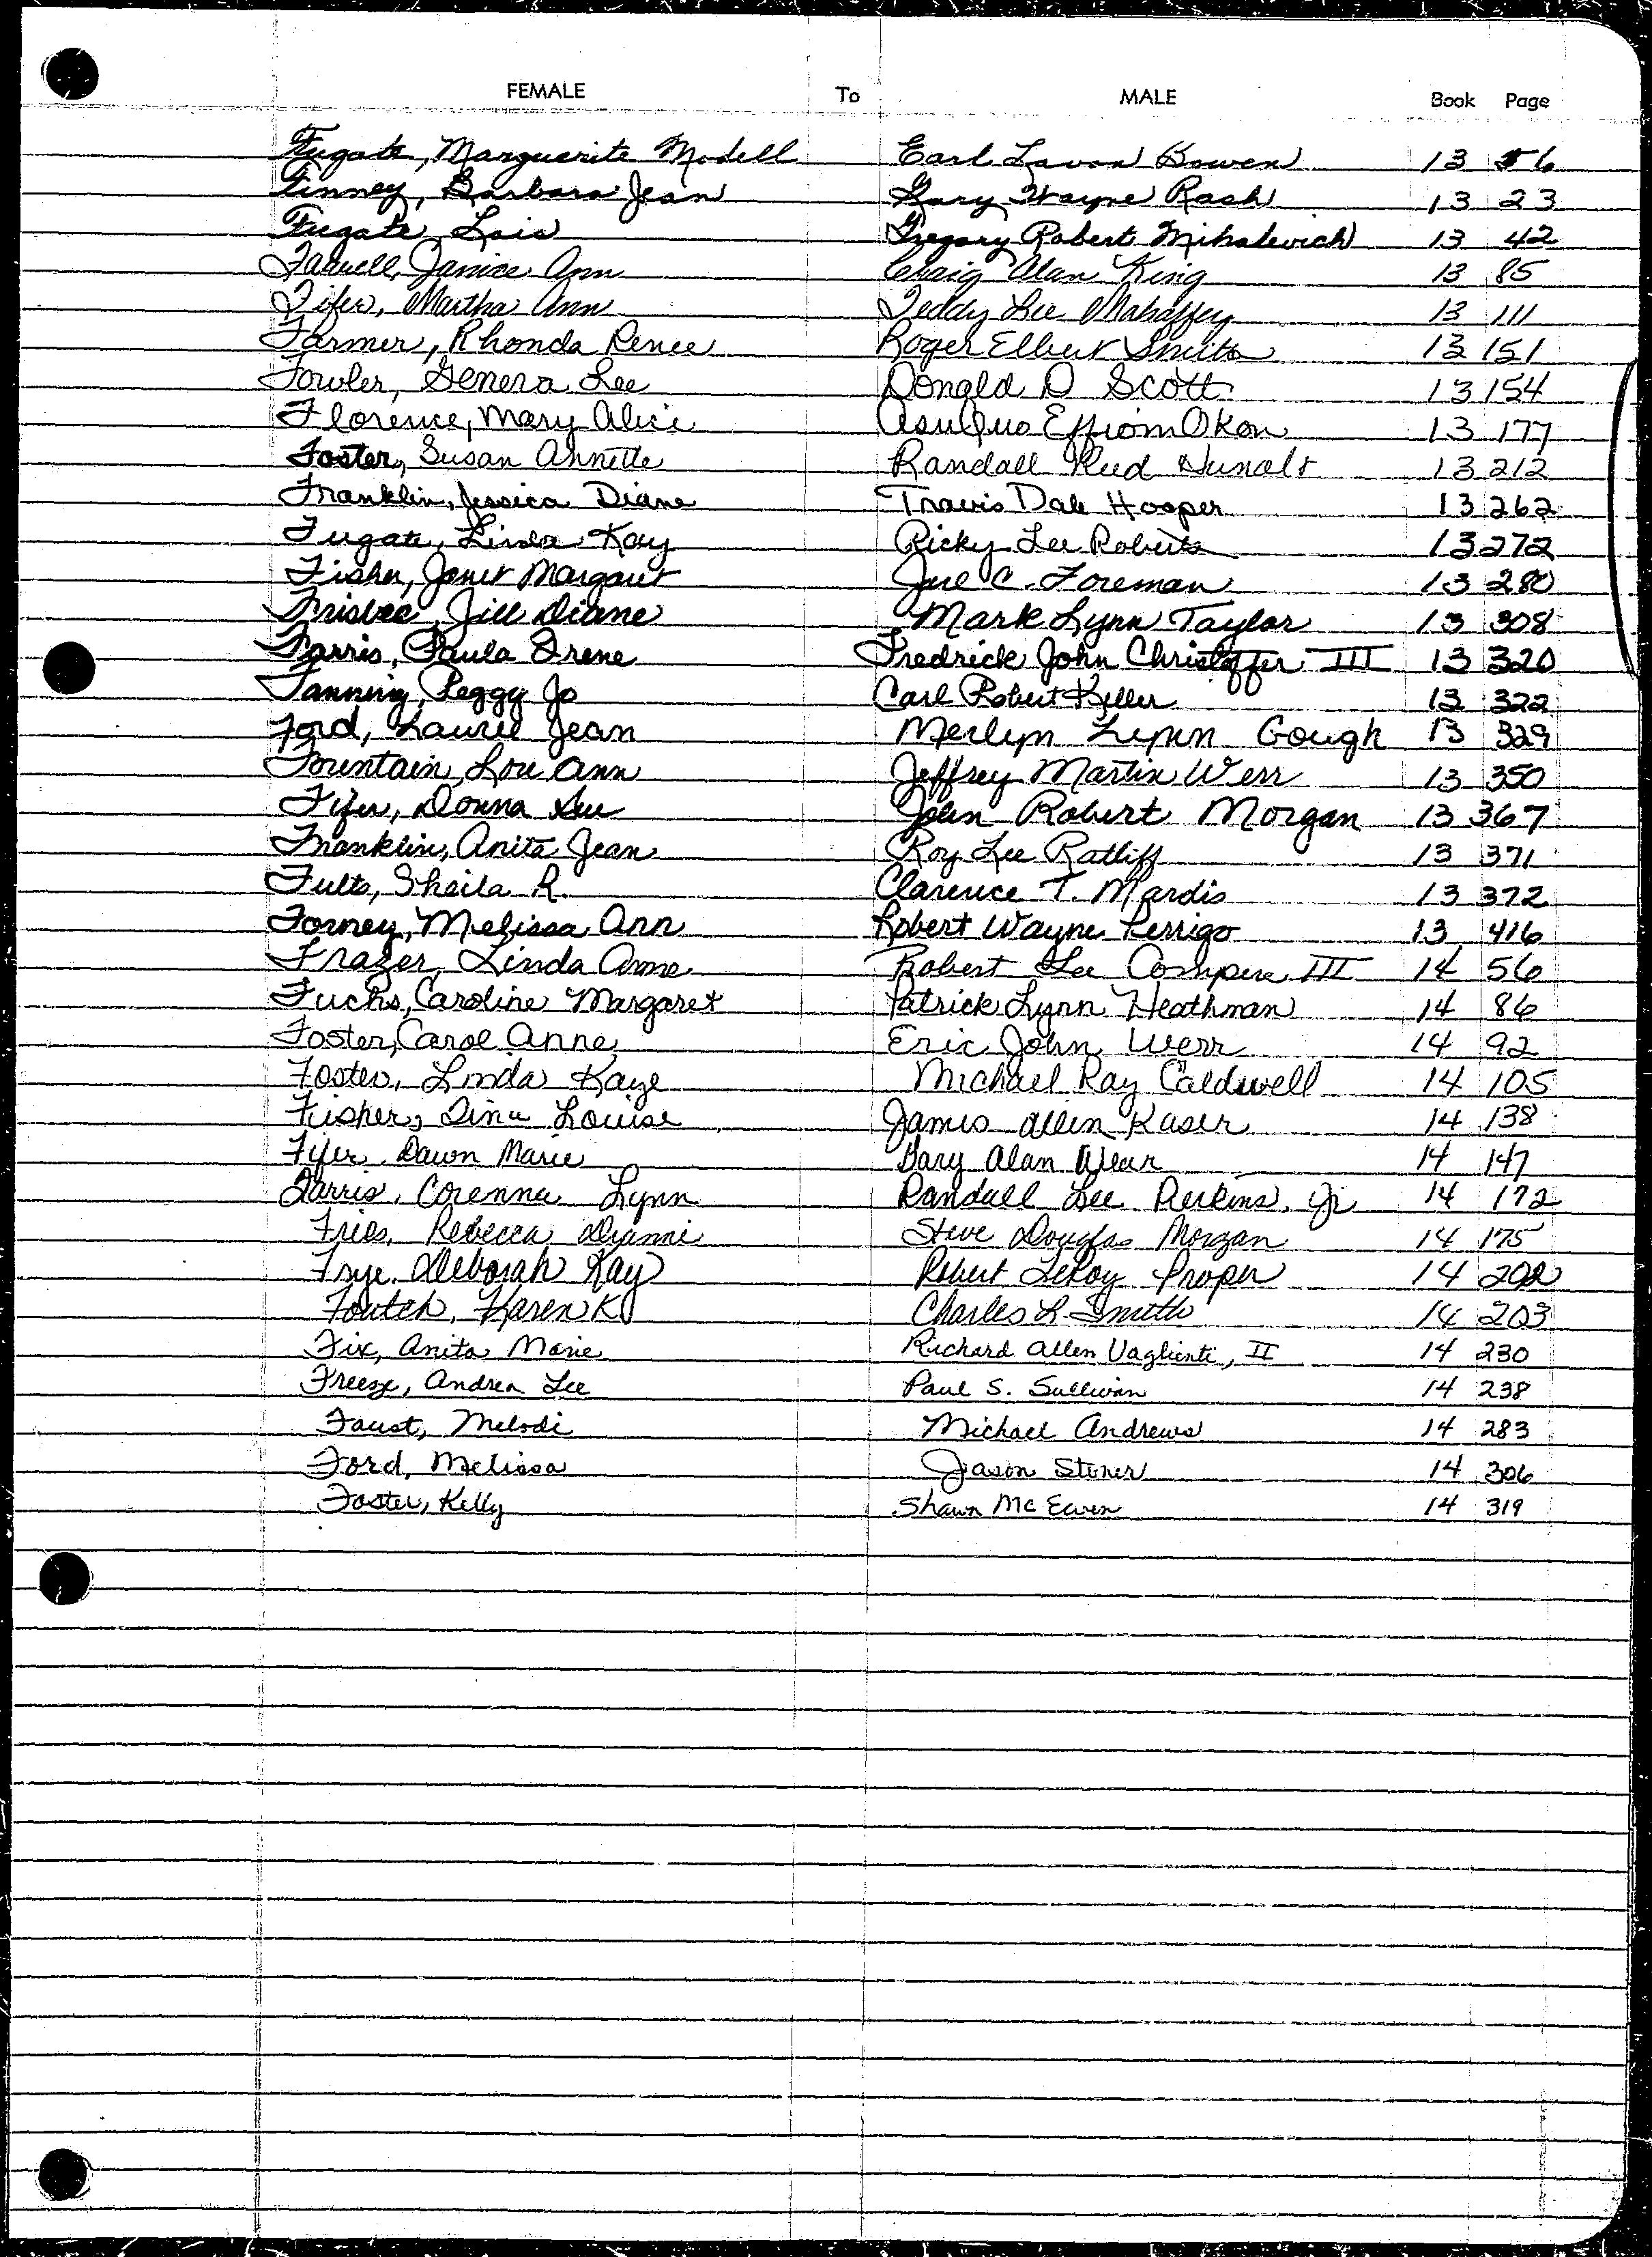 FEMALE To MALE Book Page
Fugate, Marguerite Modell Earl Lavon Bowen 13 6
Finney, Barbara Jean Gary Wayne Rash 13 23
Fugate, Lois Gregory Robert Mihalevich 13 42
Farwell, Janice Ann Craig Alan King 13 85
Fifer, Martha Ann Teddy Lee Mahaffey 13 111
Farmer, Rhonda Renee Roger Elbert Smith 13 151
Fowler, Genera Lee Donald D Scott 13 154
Florence, Mary Alice AsuQuo Effiom Okon 13 177
Foster, Susan Annette Randall Reed 13 212
Franklin, Jessica Diane Travis Dale Hooper 13 262
Fugate, Linda Kay Ricky Lee Roberts 13 272
Fisher, Janet Margaret C. Foreman 13 280
Frisbee, Jill Diane Mark Lynn Taylor 13 308
Farris, Paula Irene Fredrick John Christoffer III 13 320
Fanning, Peggy Jo Carl Robert Keller 13 322
Ford, Laurie Jean Merlyn Lynn Gough 13 329
Fountain, Lou Ann Jeffrey Martin Werr 13 350
Fifer, Donna Sue John Robert Morgan 13 367
Franklin, Anita Jean Roy Lee Ratliff 13 371
Fults, Sheila R. Clarence T. Mardis 13 372
Forney, Melissa Ann Robert Wayne Perrigo 13 416
Frazer, Linda Anne Robert Lee Compere III 14 56
Fuchs, Caroline Margaret Patrick Lynn Heathman 14 86
Foster, Carol Anne Eric John Werr 14 92
Foster, Linda Kaye Michael Ray Caldwell 14 105
Fisher, Tina Louise James Allen Kaser 14 138
Fifer, Dawn Marie Gary Alan Wear 14 147
Farris, Corenna Lynn Randall Lee Perkins, Jr 14 172
Frias, Rebecca Dianne Steve Douglas Morgan 14 175
Frye, Deborah Kay Robert LeRoy Proper 14 202
Foutch, Karen K Charles L. Smith 14 203
Fix, Anita Marie Richard Allen Vaglienti, II 14 230
Freeze, Andrea Lee Paul S. Sullivan 14 238
Faust, Melodi Michael Andrews 14 283
Ford, Melissa Jason Stoner 14 306
Foster, Kelly Shawn McEwen 14 319